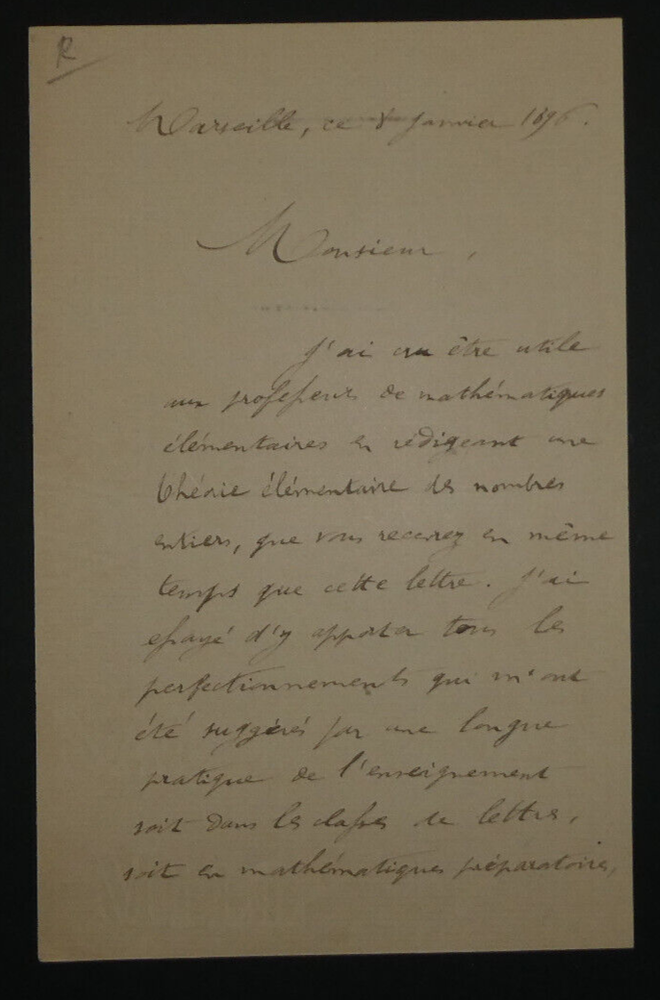 R
Marseille, ce 8 janvier 1896.
Monsieur,
J'ai cru être utile
aux professeurs de mathématiques
élémentaires en rédigeant une
théorie élémentaire des nombres
entiers, que vous recevrez en même
temps que cette lettre. J'ai
essayé d'y apporter tous les
perfectionnements qui m'ont
été suggérés par une longue
pratique de l'enseignement
soit dans les classes de lettres,
soit en mathématiques préparatoires,